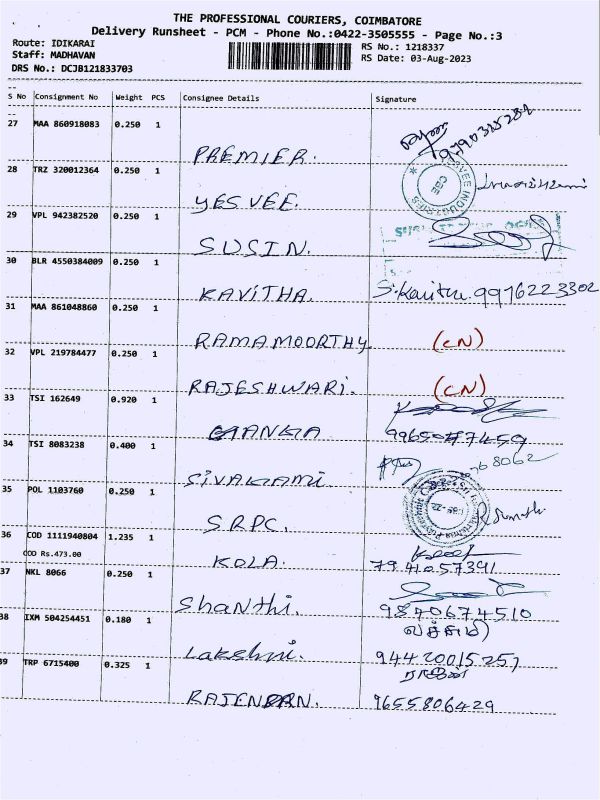 THE PROFESSIONAL COURIERS, COIMBATORE
Delivery Runsheet - PCM - Phone No.:0422-3505555 - Page No.:3
Route: IDIKARAI RS No.: 1218337
Staff: MADHAVAN RS Date: 03-Aug-2023
DRS No.: DCJB121833703
S No Consignment No Weight PCS Consignee Details Signature
27 MAA 860918083 0.250 1
PREMIER.
28 TRZ 320012364 0.250 1
YESVEE.
29 VPL 942382520 0.250 1
SUSIN.
30 BLR 4550384009 0.250 1
KAVITHA. S.Kavitha. 9976223302
31 MAA 861048860 0.250 1
RAMAMOORTHY (CN)
32 VPL 219784477 0.250 1
RAJESHWARI. (CN)
33 TSI 162649 0.920 1
GANGA
34 TSI 8083238 0.400 1
SIVAGAMI
35 POL 1103760 0.250 1
S.R.P.C.
36 COD 1111940804 1.235 1
COD Rs.473.00
KOLA. 7941057391
37 NKL 8066 0.250 1
Shanthi. 9870674510
38 IXM 504254451 0.180 1
Lakshmi. 94420015257
39 TRP 6715400 0.325 1
RAJENDRN. 9655806429